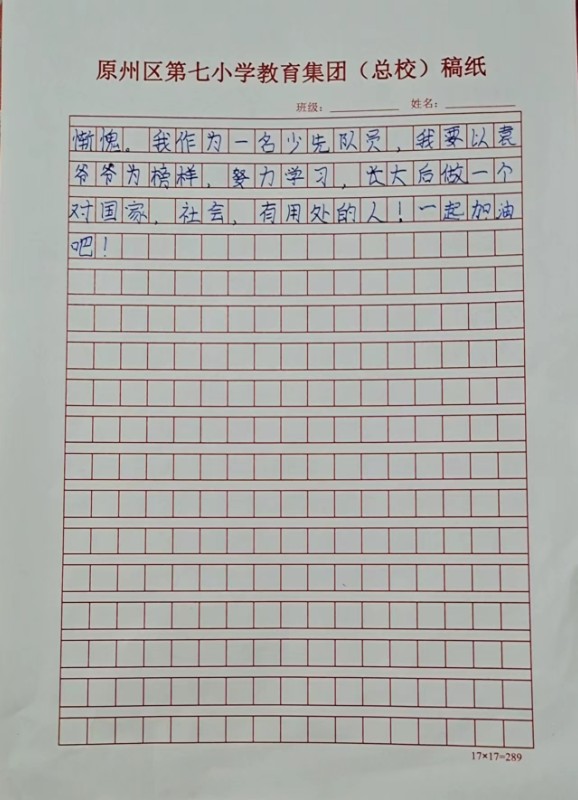 原州区第七小学教育集团（总校）稿纸
班级：
姓名：
惭愧。我作为一名少先队员，我要以袁
爷爷为榜样，努力学习，长大后做一个
对国家，社会，有用处的人！一起加油
吧！
17×17=289